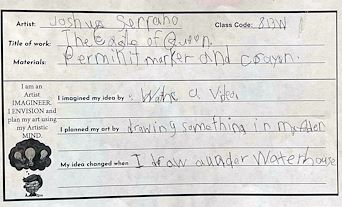 Artist: Joshua Serrano Class Code: 813W
Title of work: The Eagle of Queen.
Materials: Perminit marker and crayon.
I am an
Artist
IMAGINEER.
I ENVISION and
plan my art using
my Artistic
MIND.
I imagined my idea by: Watch a Video
I planned my art by drawing something in my
My idea changed when I draw a under Waterhouse